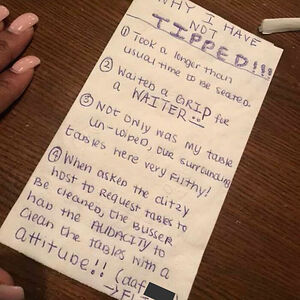 WHY I HAVE
NOT
TIPPED!!!!
① Took a longer than
usual time to be seated.
② Waited a GRIP for
a WAITER!!
③ Not only was my table
un-wiped, our surrounding
tables here very filthy!
④ When asked the ditzy
host to request tables to
be cleaned, the busser
had the AUDACITY to
clean the tables with a
attitude!!